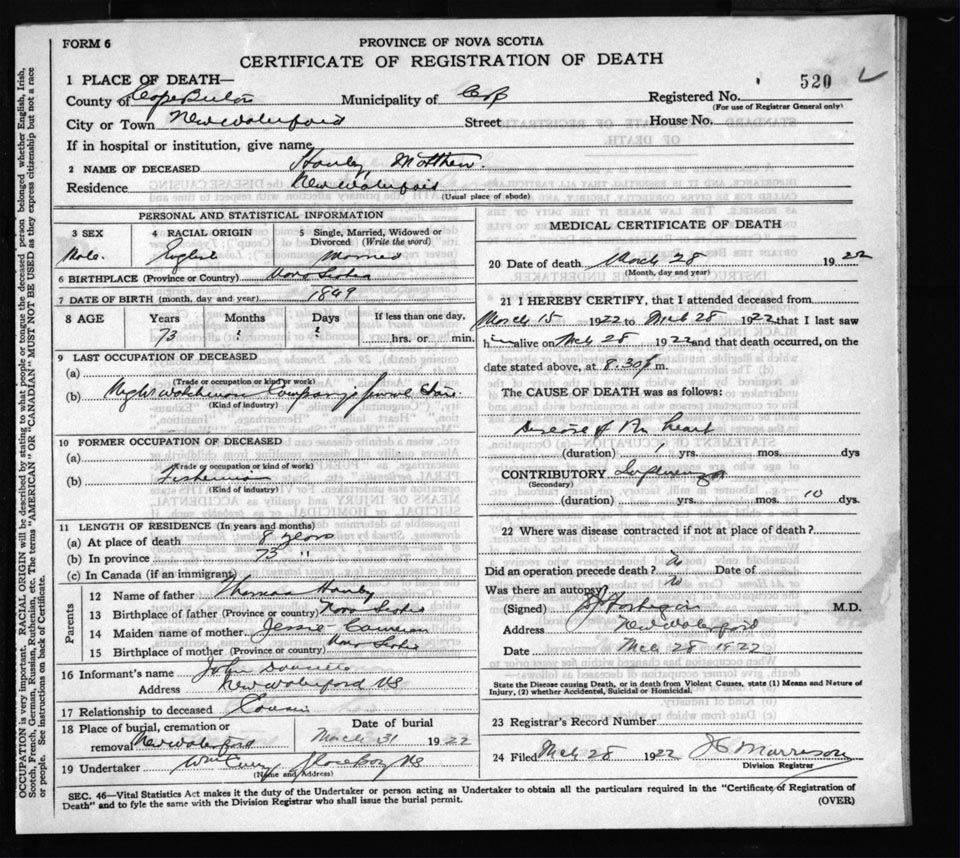 FORM 6
PROVINCE OF NOVA SCOTIA
CERTIFICATE OF REGISTRATION OF DEATH
1 PLACE OF DEATH—
520
County of Cape Breton Municipality of C B Registered No.
(For use of Registrar General only)
City or Town New Waterford Street House No.
If in hospital or institution, give name
2 NAME OF DECEASED Hanley, Matthew.
Residence New Waterford
(Usual place of abode)
PERSONAL AND STATISTICAL INFORMATION
3 SEX
Male.
4 RACIAL ORIGIN
English
5 Single, Married, Widowed or Divorced (Write the word)
Married
6 BIRTHPLACE (Province or Country) Nova Scotia
7 DATE OF BIRTH (month, day and year) 1849
8 AGE Years Months Days If less than one day,
73 hrs. or min.
9 LAST OCCUPATION OF DECEASED
(a)
(Trade or occupation or kind or work)
(b) Night Watchman Company's
(Kind of industry)
10 FORMER OCCUPATION OF DECEASED
(a)
(Trade or occupation or kind of work)
(b) Fisherman
(Kind of industry)
11 LENGTH OF RESIDENCE (In years and months)
(a) At place of death 8 years
(b) In province 73 "
(c) In Canada (if an immigrant)
Parents
12 Name of father Thomas Hanley
13 Birthplace of father (Province or country) Nova Scotia
14 Maiden name of mother Jessie Cameron
15 Birthplace of mother (Province or country) Nova Scotia
16 Informant's name John
Address New Waterford NS
17 Relationship to deceased Cousin
18 Place of burial, cremation or removal New Waterford
Date of burial
March 31 1922
19 Undertaker Wm Curry Glace Bay NS
(Name and Address)
MEDICAL CERTIFICATE OF DEATH
20 Date of death March 28 1922
(Month, day and year)
21 I HEREBY CERTIFY, that I attended deceased from
March 15 1922 to Mch 28 1922 that I last saw
him alive on Mch 28 1922 and that death occurred, on the
date stated above, at 8.30 m.
The CAUSE OF DEATH was as follows:
Disease of the heart
(duration) 1 yrs. mos. dys
CONTRIBUTORY Influenza
(Secondary)
(duration) yrs. mos. 10 dys.
22 Where was disease contracted if not at place of death?
Did an operation precede death? no Date of
Was there an autopsy? no
(Signed) M.D.
Address New Waterford
Date Mch 28 1922
State the Disease causing Death, or in death from Violent Causes, state (1) Means and Nature of
Injury, (2) whether Accidental, Suicidal or Homicidal.
23 Registrar's Record Number
24 Filed Mch 28 1922 Morrison
Division Registrar
SEC. 46—Vital Statistics Act makes it the duty of the Undertaker or person acting as Undertaker to obtain all the particulars required in the "Certificate of Registration of
Death" and to fyle the same with the Division Registrar who shall issue the burial permit.
(OVER)
OCCUPATION is very important. RACIAL ORIGIN will be described by stating to what people or tongue the deceased person belonged whether English, Irish,
Scotch, French, German, Russian, Ruthenian, etc. The terms "AMERICAN" OR "CANADIAN" MUST NOT BE USED as they express citizenship but not a race
or people. See instructions on back of Certificate.